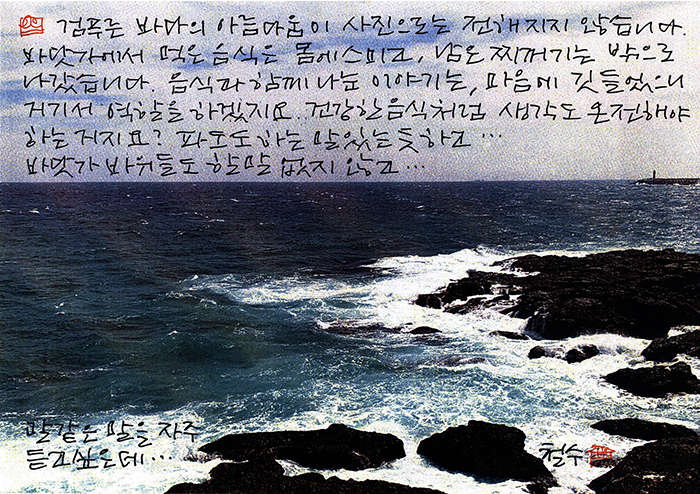 검푸른 바다의 아름다움이 사진으로는 전해지지 않습니다.
바닷가에서 먹은 음식은 몸에 스미고, 남은 찌꺼기는 밖으로
나갔습니다. 음식과 함께 나눈 이야기는, 마음에 깃들었으니
거기서 역할을 하겠지요.. 건강한 음식처럼 생각도 온전해야
하는 거지요? 파도도 하는 말 있는 듯하고…
바닷가 바위들도 할 말 없지 않고…
말같은 말을 자주
듣고 싶은데…
철수